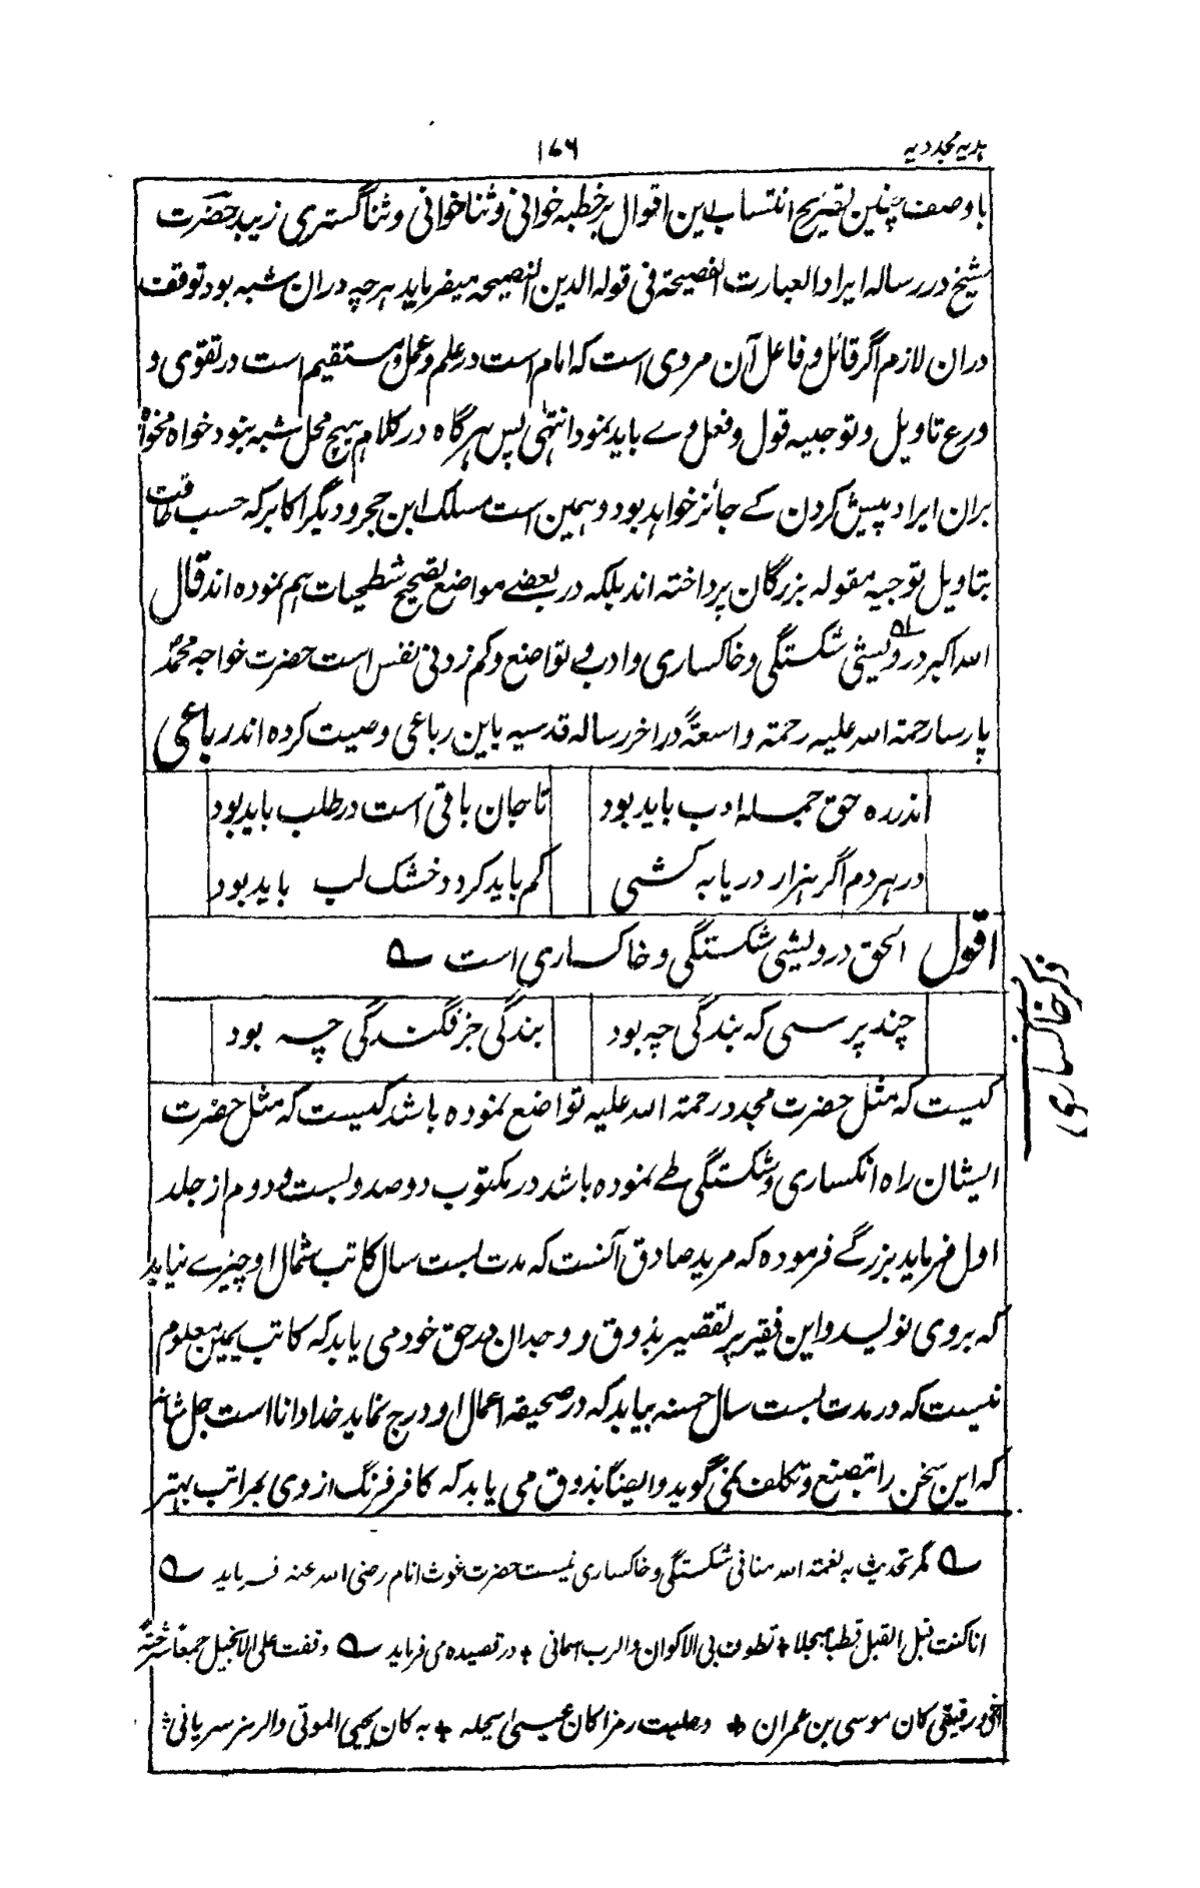 ہدیہ مجددیہ
۱۷۶
باوصف چنین تصریح انتساب این اقوال بر خطبہ خوانی و ثنا خوانی و ثنا گستری زید حضرت
شیخ در رسالہ ایراد العبارت الفصیحۃ فی قولہ الدین النصیحہ میفرماید ہر چہ دران شبہ بود توقف
دران لازم اگر قائل و فاعل آن مردی است کہ امام است در علم و عمل و مستقیم است در تقوی و
ورع تاویل و توجیہ قول و فعل وے باید نمود انتہی پس ہرگاہ در کلام ہیچ محل شبہ نبود خواہ مخواہ
بران ایراد پیش کردن کے جائز خواہد بود و ہمین است مسلک ابن حجر و دیگر اکابر کہ حسب طاقت
بتاویل توجیہ مقولہ بزرگان پرداختہ اند بلکہ در بعضے مواضع تصحیح شطحیات ہم نمودہ اند قال
اللہ اکبر درویشی شکستگی و خاکساری و ادب و تواضع و کم زدنی نفس است حضرت خواجہ محمد
پارسا رحمۃ اللہ علیہ رحمۃ واسعۃً در اخر رسالہ قدسیہ باین رباعی وصیت کردہ اند رباعی
اندرہ حق جملہ ادب باید بود تا جان باقی است در طلب باید بود
در ہر دم اگر ہزار دریا بہ کشی کم باید کرد و خشک لب باید بود
اقول الحق درویشی شکستگی و خاکساری است ؎
چند پرسی کہ بندگی چہ بود بندگی جز فگندگی چہ بود
ذکر خاکساری
کیست کہ مثل حضرت مجدد رحمۃ اللہ علیہ تواضع نمودہ باشد کیست کہ مثل حضرت
ایشان راہ انکساری و شکستگی طے نمودہ باشد در مکتوب دوصد و بست و دوم از جلد
اول فرماید بزرگے فرمودہ کہ مرید صادق آنست کہ مدت بست سال کاتب شمال او چیزے نیابد
کہ بروی نویسد و این فقیر پر تقصیر بذوق و وجدان در حق خود می یابد کہ کاتب یمین معلوم
نیست کہ در مدت بست سال حسنہ بیابد کہ در صحیفہ اعمال او درج نماید خدا دانا است جل شانہ
کہ این سخن را بتصنع و تکلف نمی گوید و ایضًا بذوق می یابد کہ کافر فرنگ از وی بمراتب بہتر
؎ مگر تحدیث بہ نعمتہ اللہ منافی شکستگی و خاکساری نیست حضرت غوث انام رضی اللہ عنہ فرماید ؎
انا کنت قبل القبل قطبا مبجلا + تطوف بی الاکوان والرب اسمانی + در قصیدہ می فرماید ؎ وقفت علی الانجیل حتی شرحتہ
و رفیقی کان موسی بن عمران + وحلیت رمزا کان عیسی یحلہ + بہ کان یحیی الموتی والرمز سریانی